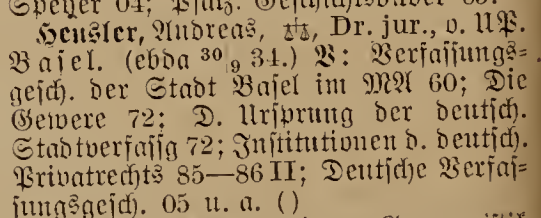 Speyer 04; Pfälz. Geschichtsbilder 05.
Heusler, Andreas, Dr. jur., o. UP.
Basel. (ebda 30/9 34.) V: Verfassungs=
gesch. der Stadt Basel im MA 60; Die
Gewere 72; D. Ursprung der deutsch.
Stadtverfassg 72; Institutionen d. deutsch.
Privatrechts 85—86 II; Deutsche Verfas=
sungsgesch. 05 u. a. ()